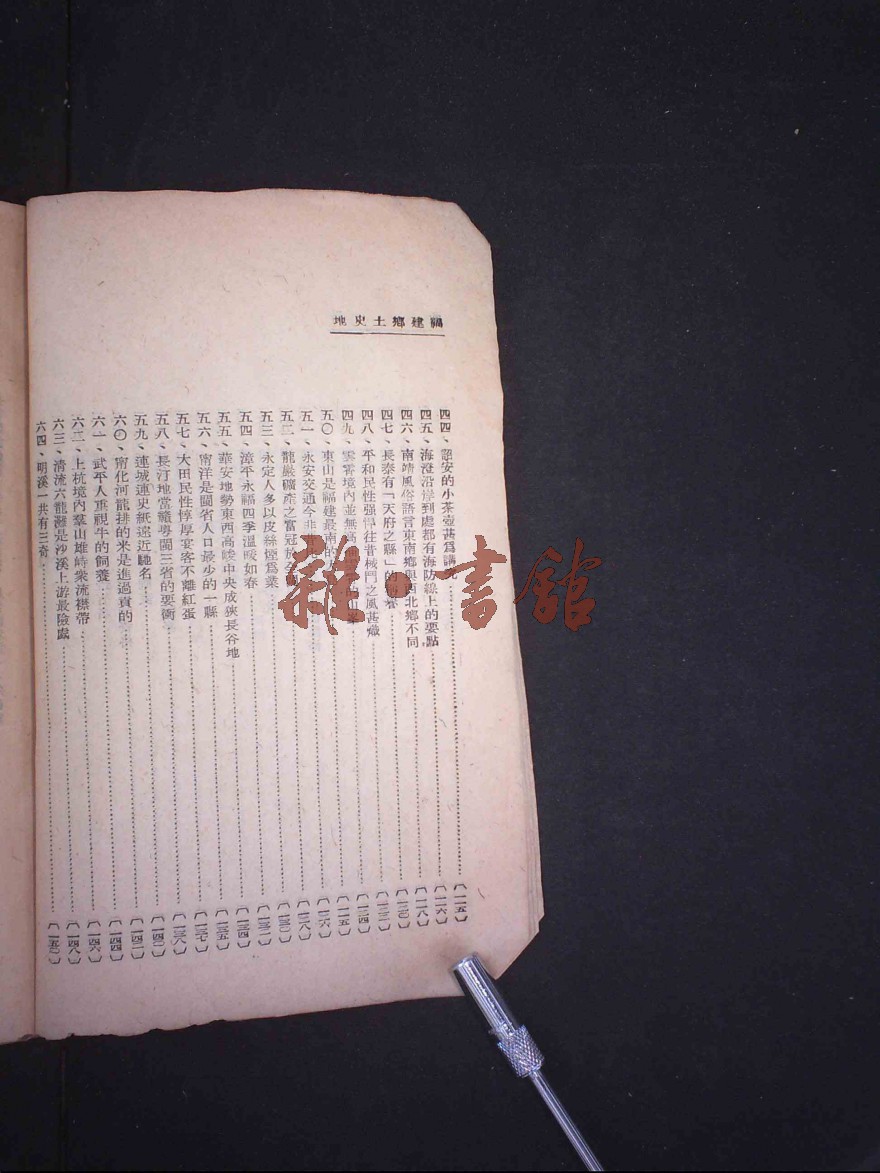 福建鄉土史地
四四、詔安的小茶壺甚爲講究……(一一五)
四五、海澄沿岸到處都有海防線上的要點……(一一六)
四六、南靖風俗語言東南鄉與西北鄉不同……(一一八)
四七、長泰有「天府之縣」的……
四八、平和民性强悍往昔械鬥之風甚熾
四九、雲霄境內並無高……的山……(一二五)
五〇、東山是福建最南的……(一二六)
五一、永安交通今非昔比……(一二八)
五二、龍巖礦產之富冠於全……(一三〇)
五三、永定人多以皮絲煙爲業……(一三二)
五四、漳平永福四季溫暖如春……(一三四)
五五、華安地勢東西高峻中央成狹長谷地……(一三五)
五六、甯洋是閩省人口最少的一縣……(一三七)
五七、大田民性惇厚宴客不離紅蛋……(一三八)
五八、長汀地當贛粵閩三省的要衝……(一四〇)
五九、連城連史紙遠近馳名……(一四二)
六〇、甯化河龍排的米是進過貢的……(一四四)
六一、武平人重視牛的飼養……(一四六)
六二、上杭境內羣山雄峙衆流襟帶……(一四八)
六三、清流六龍灘是沙溪上游最險處……(一五〇)
六四、明溪一共有三奇
雜·書館